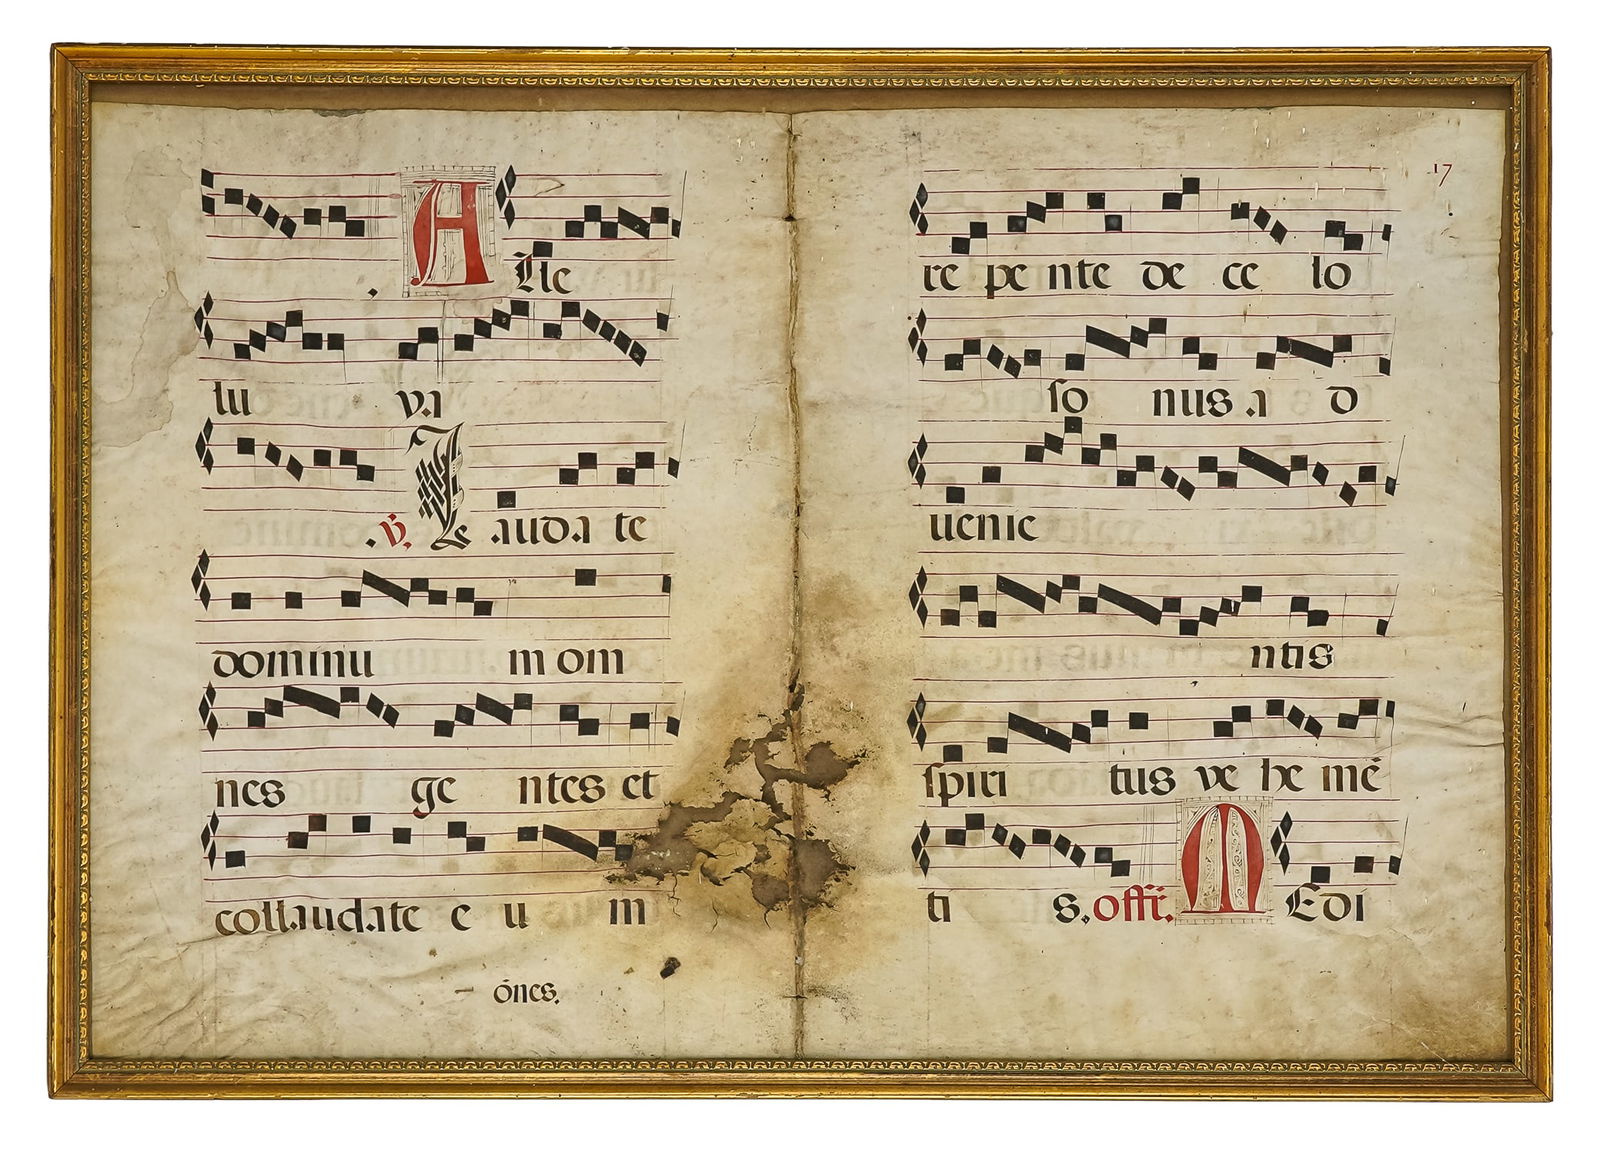 Alle
lu va
. ℣. Lauda te
dominu m om
nes ge ntes et
collaudate e u m
ōnes.
17
re pe nte de ce lo
so nus a d
uenie
ntis
spiri tus ve he mē
ti s. offi. M Edi